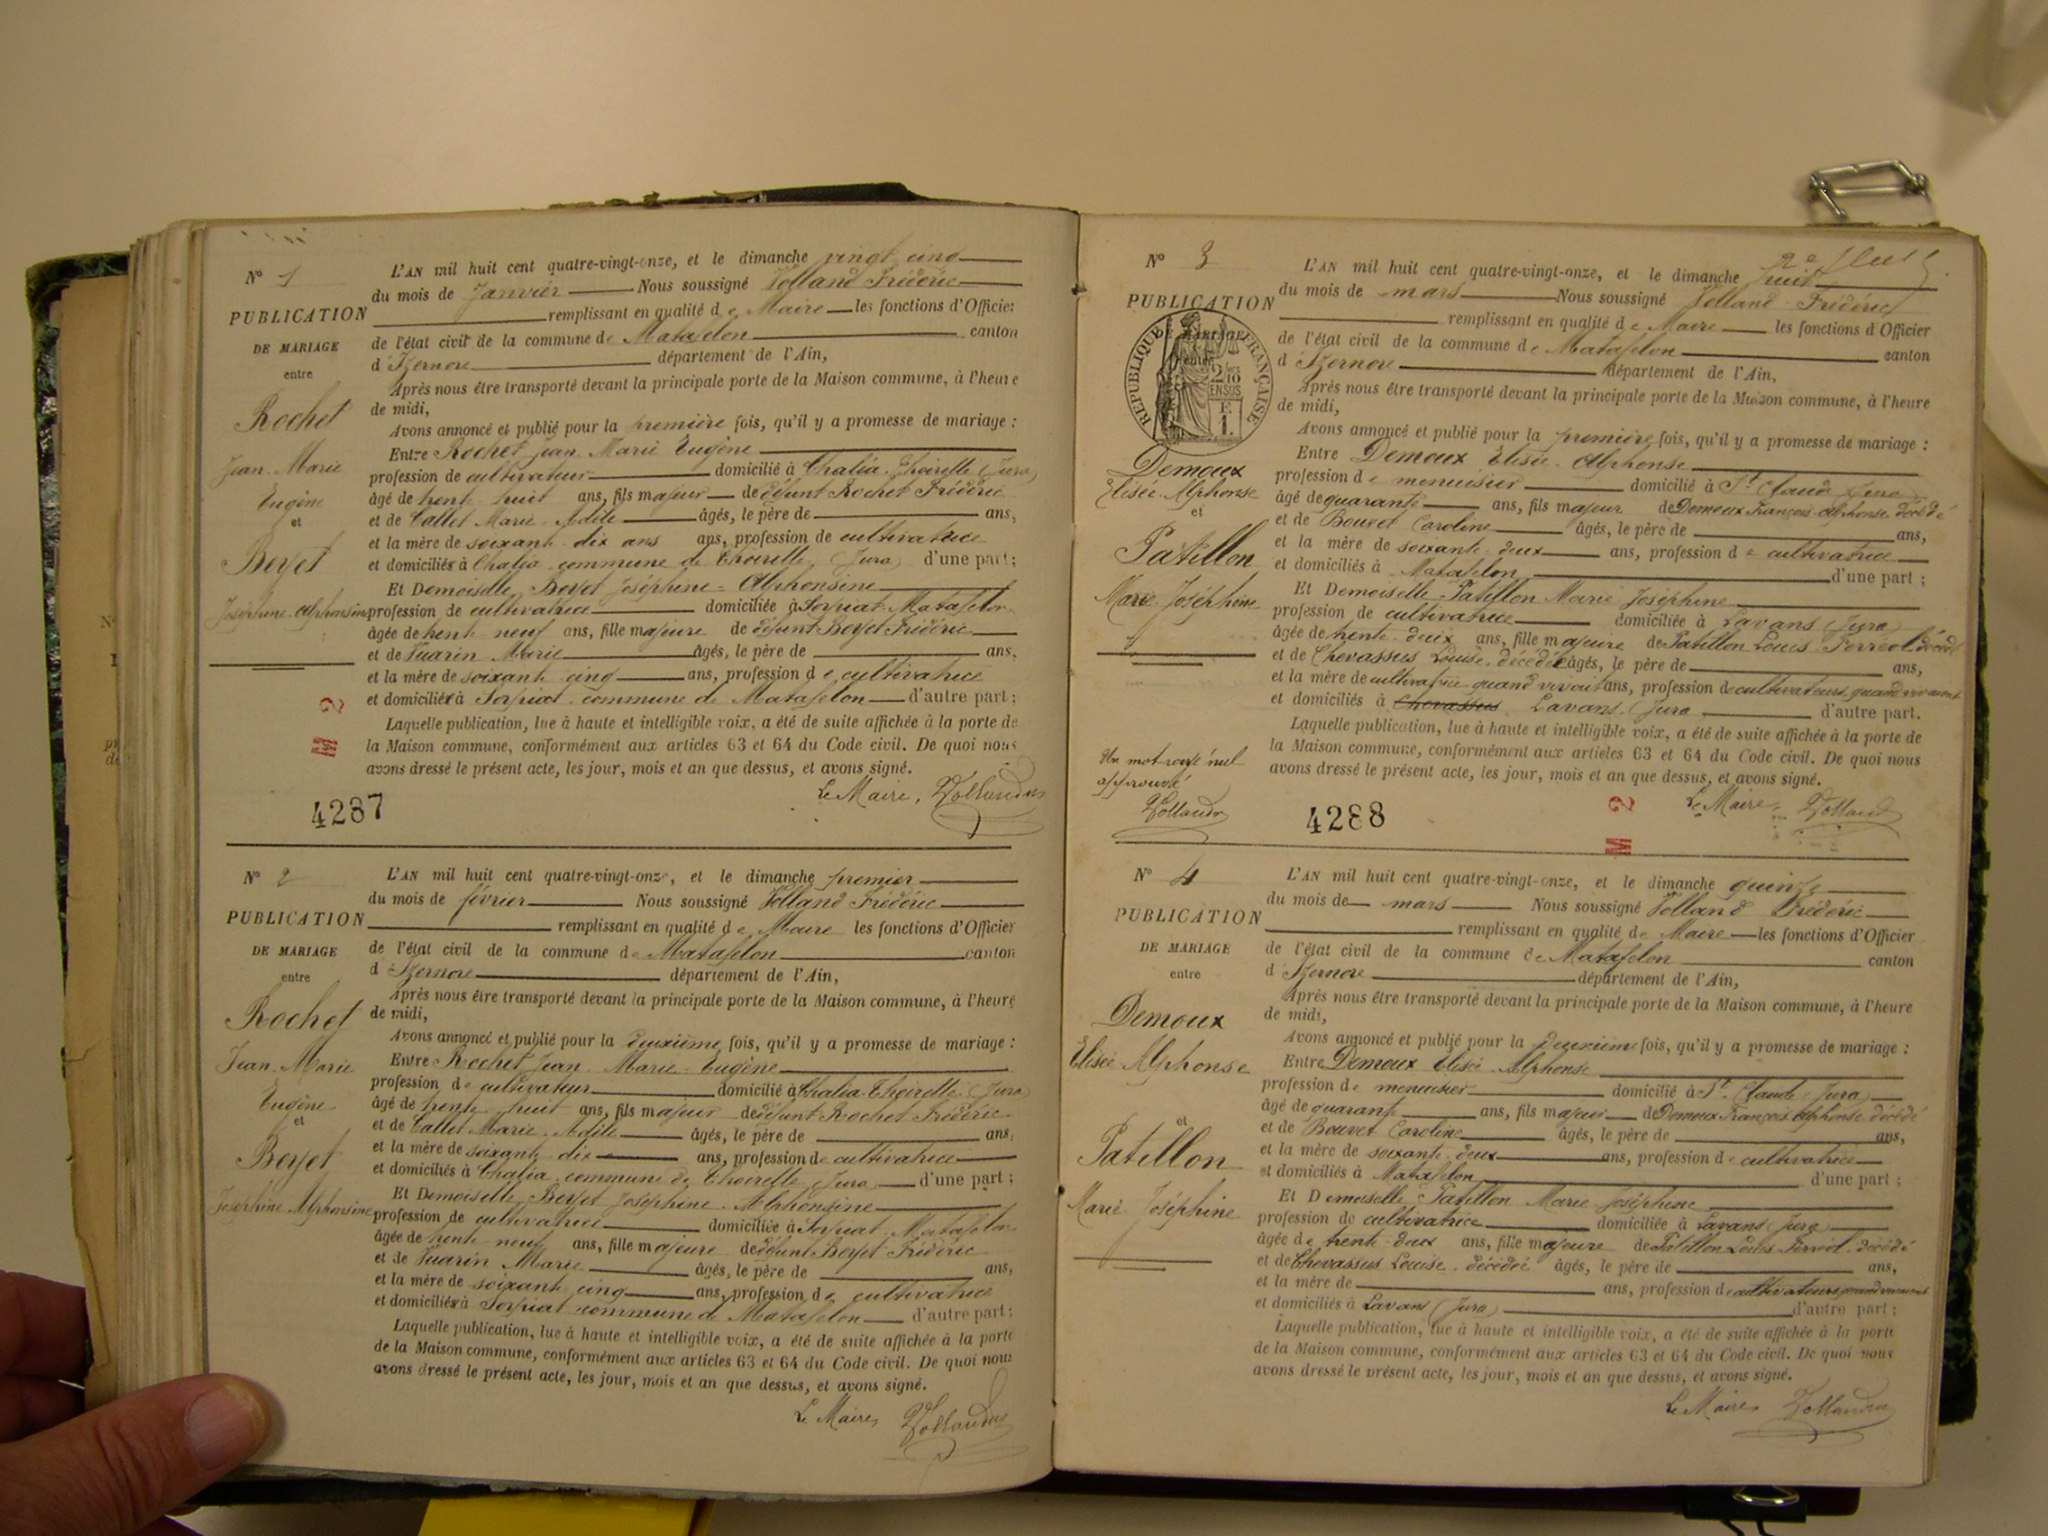 N° 1
PUBLICATION
DE MARIAGE
entre
Rochet
Jean Marie
Eugène
et
Beyet
Joséphine Alphonsine
L'AN mil huit cent quatre-vingt-onze, et le dimanche vingt cinq
du mois de Janvier Nous soussigné Volland Frédéric
remplissant en qualité de Maire les fonctions d'Officier
de l'état civil de la commune de Matafelon canton
d'Izernore département de l'Ain,
Après nous être transporté devant la principale porte de la Maison commune, à l'heure
de midi,
Avons annoncé et publié pour la première fois, qu'il y a promesse de mariage :
Entre Rochet Jean Marie Eugène
profession de cultivateur domicilié à Chalia Thoirette (Jura)
âgé de trente huit ans, fils majeur de défunt Rochet Frédéric
et de Callet Marie Adèle âgés, le père de ans,
et la mère de soixante dix ans ans, profession de cultivatrice
et domiciliés à Chalia commune de Thoirette (Jura) d'une part;
Et Demoiselle Beyet Joséphine Alphonsine
profession de cultivatrice domiciliée à Sorpiat Matafelon
âgée de trente neuf ans, fille majeure de défunt Beyet Frédéric
et de Tuarin Marie âgés, le père de ans,
et la mère de soixante cinq ans, profession de cultivatrice
et domiciliés à Sorpiat commune de Matafelon d'autre part;
Laquelle publication, lue à haute et intelligible voix, a été de suite affichée à la porte de
la Maison commune, conformément aux articles 63 et 64 du Code civil. De quoi nous
avons dressé le présent acte, les jour, mois et an que dessus, et avons signé.
Le Maire, Vollandre
M 2
4287
N° 2
PUBLICATION
DE MARIAGE
entre
Rochet
Jean Marie
Eugène
et
Beyet
Joséphine Alphonsine
L'AN mil huit cent quatre-vingt-onze, et le dimanche premier
du mois de février Nous soussigné Volland Frédéric
remplissant en qualité de Maire les fonctions d'Officier
de l'état civil de la commune de Matafelon canton
d'Izernore département de l'Ain,
Après nous être transporté devant la principale porte de la Maison commune, à l'heure
de midi,
Avons annoncé et publié pour la deuxième fois, qu'il y a promesse de mariage :
Entre Rochet Jean Marie Eugène
profession de cultivateur domicilié à Chalia Thoirette (Jura)
âgé de trente huit ans, fils majeur de défunt Rochet Frédéric
et de Callet Marie Adèle âgés, le père de ans,
et la mère de soixante dix ans, profession de cultivatrice
et domiciliés à Chalia commune de Thoirette Jura d'une part;
Et Demoiselle Beyet Joséphine Alphonsine
profession de cultivatrice domiciliée à Sorpiat Matafelon
âgée de trente neuf ans, fille majeure de défunt Beyet Frédéric
et de Tuarin Marie âgés, le père de ans,
et la mère de soixante cinq ans, profession de cultivatrice
et domiciliés à Sorpiat commune de Matafelon d'autre part;
Laquelle publication, lue à haute et intelligible voix, a été de suite affichée à la porte
de la Maison commune, conformément aux articles 63 et 64 du Code civil. De quoi nous
avons dressé le présent acte, les jour, mois et an que dessus, et avons signé.
Le Maire, Vollandre
N° 3
PUBLICATION
DE MARIAGE
entre
RÉPUBLIQUE FRANÇAISE
2/10
EN SUS
E
1.
Demoux
Elisée Alphonse
et
Patillon
Marie Joséphine
Un mot rayé nul
approuvé
Vollandre
L'AN mil huit cent quatre-vingt-onze, et le dimanche huit
du mois de mars Nous soussigné Volland Frédéric
remplissant en qualité de Maire les fonctions d'Officier
de l'état civil de la commune de Matafelon canton
d'Izernore département de l'Ain,
Après nous être transporté devant la principale porte de la Maison commune, à l'heure
de midi,
Avons annoncé et publié pour la première fois, qu'il y a promesse de mariage :
Entre Demoux Elisée Alphonse
profession de menuisier domicilié à St Claude Jura
âgé de quarante ans, fils majeur de Demoux François Alphonse décédé
et de Bouvet Caroline âgés, le père de ans,
et la mère de soixante deux ans, profession de cultivatrice
et domiciliés à Matafelon d'une part;
Et Demoiselle Patillon Marie Joséphine
profession de cultivatrice domiciliée à Lavans (Jura)
âgée de trente deux ans, fille majeure de Patillon Louis Ferréol décédé
et de Chevassus Louise décédée âgés, le père de ans,
et la mère de cultivatrice quand vivait ans, profession de cultivateurs quand vivaient
et domiciliés à Chevassus Lavans (Jura d'autre part.
Laquelle publication, lue à haute et intelligible voix, a été de suite affichée à la porte de
la Maison commune, conformément aux articles 63 et 64 du Code civil. De quoi nous
avons dressé le présent acte, les jour, mois et an que dessus, et avons signé.
Le Maire, Volland
M 2
4288
N° 4
PUBLICATION
DE MARIAGE
entre
Demoux
Elisée Alphonse
et
Patillon
Marie Joséphine
L'AN mil huit cent quatre-vingt-onze, et le dimanche quinze
du mois de mars Nous soussigné Volland Frédéric
remplissant en qualité de Maire les fonctions d'Officier
de l'état civil de la commune de Matafelon canton
d'Izernore département de l'Ain,
Après nous être transporté devant la principale porte de la Maison commune, à l'heure
de midi,
Avons annoncé et publié pour la deuxième fois, qu'il y a promesse de mariage :
Entre Demoux Elisée Alphonse
profession de menuisier domicilié à St Claude (Jura)
âgé de quarante ans, fils majeur de Demoux François Alphonse décédé
et de Bouvet Caroline âgés, le père de ans,
et la mère de soixante deux ans, profession de cultivatrice
et domiciliés à Matafelon d'une part;
Et Demoiselle Patillon Marie Joséphine
profession de cultivatrice domiciliée à Lavans (Jura)
âgée de trente deux ans, fille majeure de Patillon Louis Ferréol décédé
et de Chevassus Louise décédée âgés, le père de ans,
et la mère de ans, profession de cultivateurs quand vivaient
et domiciliés à Lavans (Jura) d'autre part;
Laquelle publication, lue à haute et intelligible voix, a été de suite affichée à la porte
de la Maison commune, conformément aux articles 63 et 64 du Code civil. De quoi nous
avons dressé le présent acte, les jour, mois et an que dessus, et avons signé.
Le Maire, Vollandre